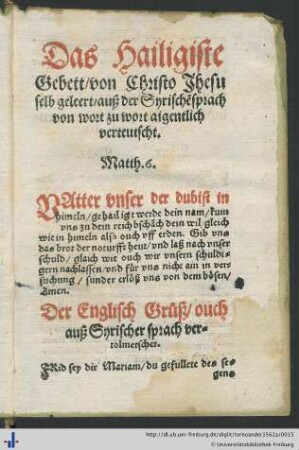 Das Hailigiste
Gebett/von Christo Jhesu
selb geleert/auß der Syrischēsprach
von wort zu wort aigentlich
verteutscht.
Matth. 6.
VAtter vnser der du bist in
himeln/gehailigt werde dein nam/kum
vns zu dein reich bschäch dein wil gleich
wie in himeln also ouch vff erden. Gib vns
das brot der noturfft heut/vnd laß nach vnser
schuld/gleich wie ouch wir vnsern schuldi-
gern nachlassen/vnd für vns nicht ain in ver
suchung/sunder erlöß vns von dem bösen/
Amen.
Der Englisch Grůß/ouch
auß Syrischer sprach ver-
tolmetscher.
FRid sey dir Mariam/du gefüllete des se-
gens
http://dl.ub.uni-freiburg.de/diglit/turecander1562a/0015
© Universitätsbibliothek Freiburg